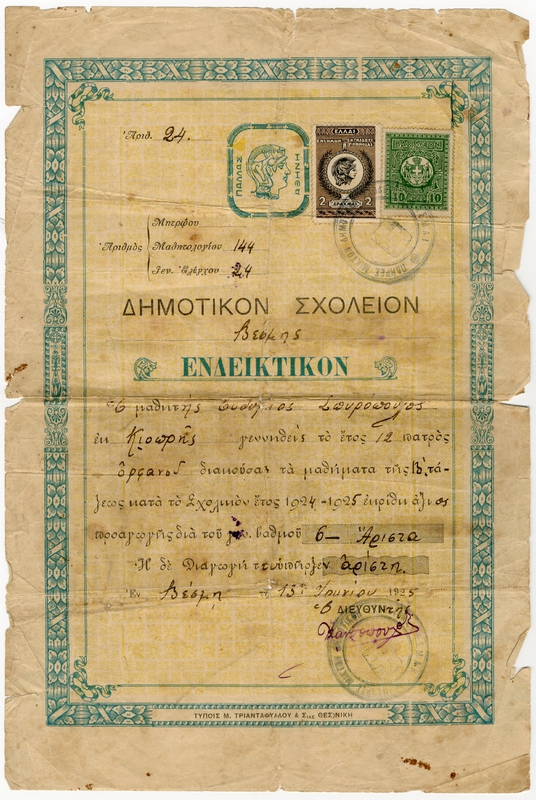 Ἀριθ. 24.
ΠΑΛΛΑΣ
ΑΘΗΝΗ
ΕΛΛΑΣ
2 ΔΡΑΧΜΑΙ 2
10 10
Μητρῴου
Ἀριθμὸς Μαθητολογίου 144
Γεν. Ἐλέγχου 24
ΔΗΜΟΤΙΚΟΝ ΣΧΟΛΕΙΟΝ
Βέσμης
ΕΝΔΕΙΚΤΙΚΟΝ
Ὁ μαθητὴς Σπυρόπουλος
ἐκ γεννηθεὶς τὸ ἔτος 12 πατρὸς
ὀρφανὸς διακούσας τὰ μαθήματα τῆς Β΄. τά-
ξεως κατὰ τὸ Σχολικὸν ἔτος 1924-1925 ἐκρίθη ἄξιος
προαγωγῆς διὰ τοῦ βαθμοῦ 6 — Ἄριστα
Ἡ δὲ Διαγωγή του ὑπῆρξεν ἀρίστη.
Ἐν Βέσμῃ τῇ 15ῃ Ἰουνίου 1925
Ὁ ΔΙΕΥΘΥΝΤΗΣ
ΤΥΠΟΙΣ Μ. ΤΡΙΑΝΤΑΦΥΛΛΟΥ & ΣΙΑΣ ΘΕΣ)ΝΙΚΗ